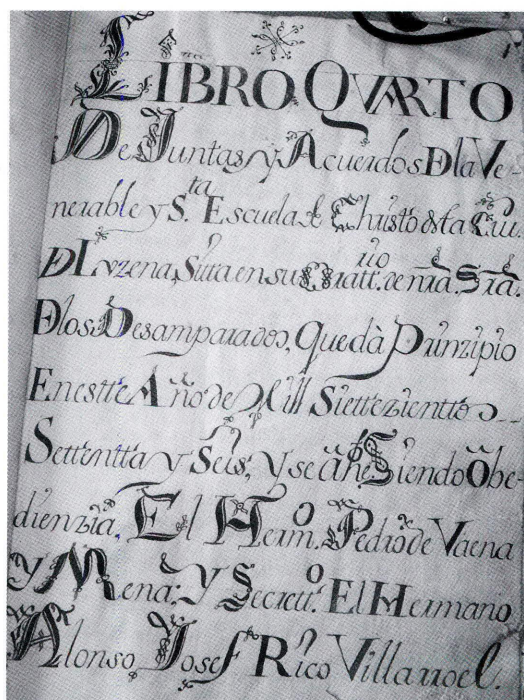 LIBRO QVARTO
De Juntas y Acuerdos D la Ve-
nerable y S.ta Escuela de Christo de esta Ciu.
D Luzena, Sita en su Oratt.rio de nrã. Srã.
D los Desamparados, Que dà Prinzipio
En estte Año de Mill Siettezienttos
Settentta y Seis; y se añe Siendo Obe-
dienzia, El Herm.o Pedro de Vaena
y Mena; y Secrett.o El Hermano
Alonso Josef Rico Villarroel.